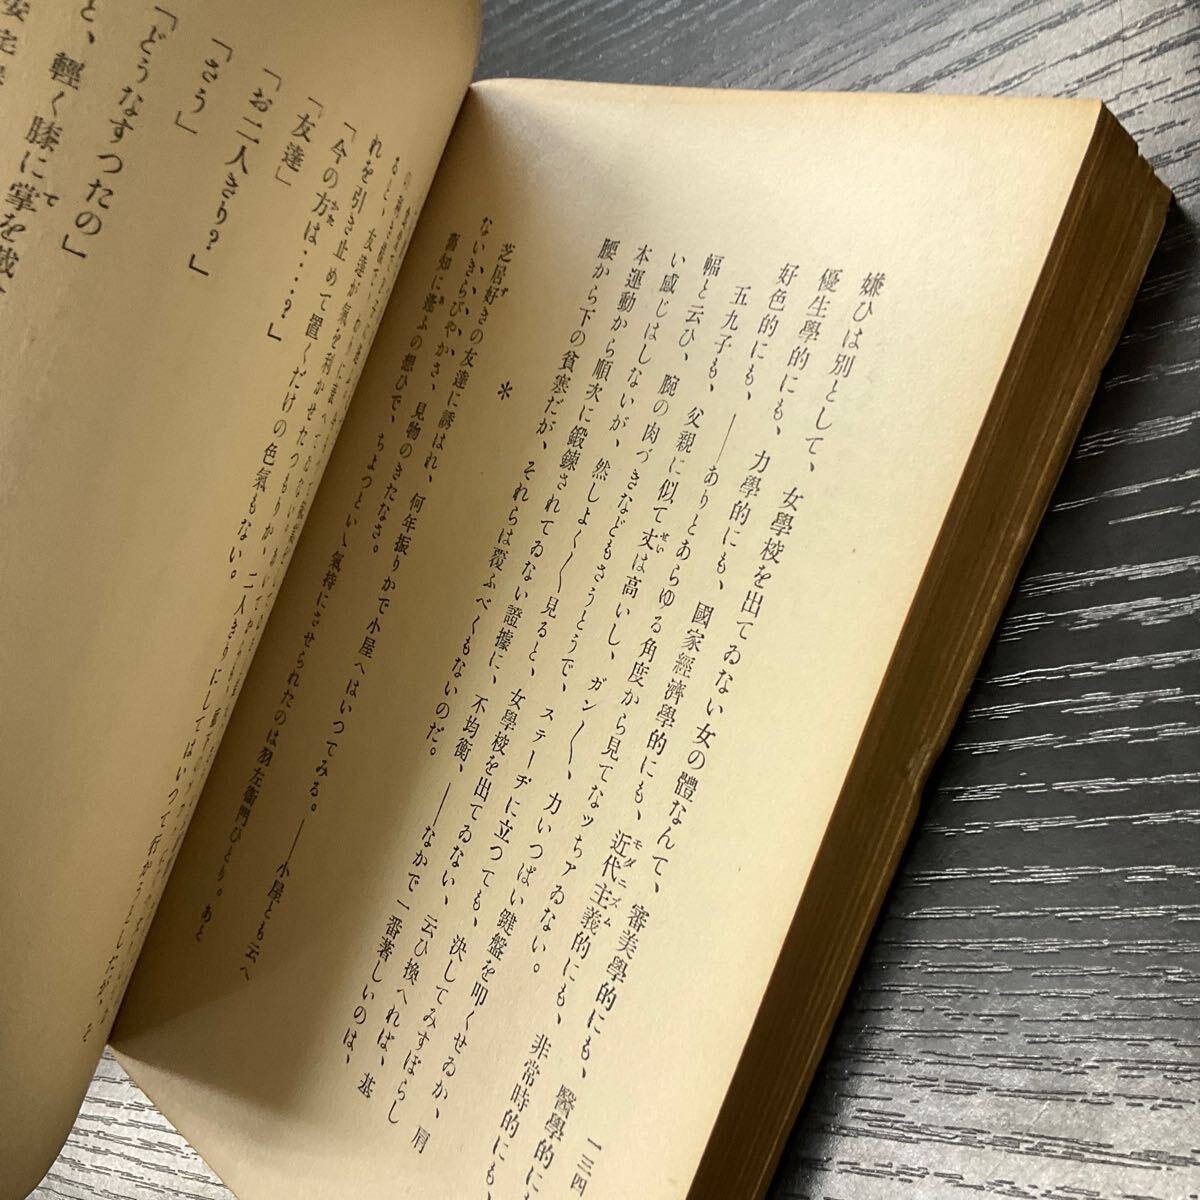 嫌ひは別として、女學校を出てゐない女の體なんて、審美學的にも、醫學的に
優生學的にも、力學的にも、國家經濟學的にも、近代主義的にも、非常時的にも、
好色的にも、――ありとあらゆる角度から見てなッちァゐない。
五九子も、父親に似て丈は高いし、ガン〳〵、力いつぱい鍵盤を叩くせゐか、肩
幅と云ひ、腕の肉づきなどもさうとうで、ステーヂに立つても、決してみすぼらし
い感じはしないが、然しよく〳〵見ると、女學校を出てゐない、云ひ換へれば、基
本運動から順次に鍛錬されてゐない證據に、不均衡、――なかで一番著しいのは、
腰から下の貧寒だが、それらは覆ふべくもないのだ。
＊
芝居好きの友達に誘はれ、何年振りかで小屋へはいつてみる。――小屋とも云へ
ないきらびやかさ、見物のきたなさ。
舊知に逢ふの想ひで、ちよつといゝ氣持にさせられたのは羽左衞門ひとり。あと
れを引き止めて置くだけの色氣もない。二人きりにしてはいつて行かうとしたが、そ
「今の方は‥‥？」
「友達」
「お二人きり？」
「さう」
「どうなすつたの」
と、輕く膝に掌を載せ